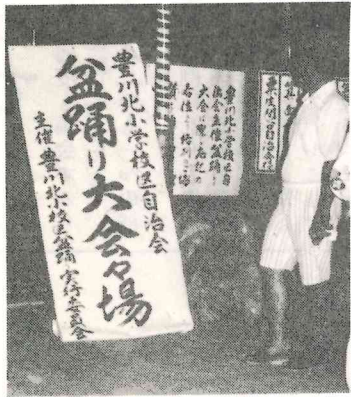 豊川北小学校区自治会
盆踊り大会々場
主催豊川北小校区盆踊実行委員会
豊川北小学校区自
治会主催盆踊り
大会に際し
粟生間谷自治会